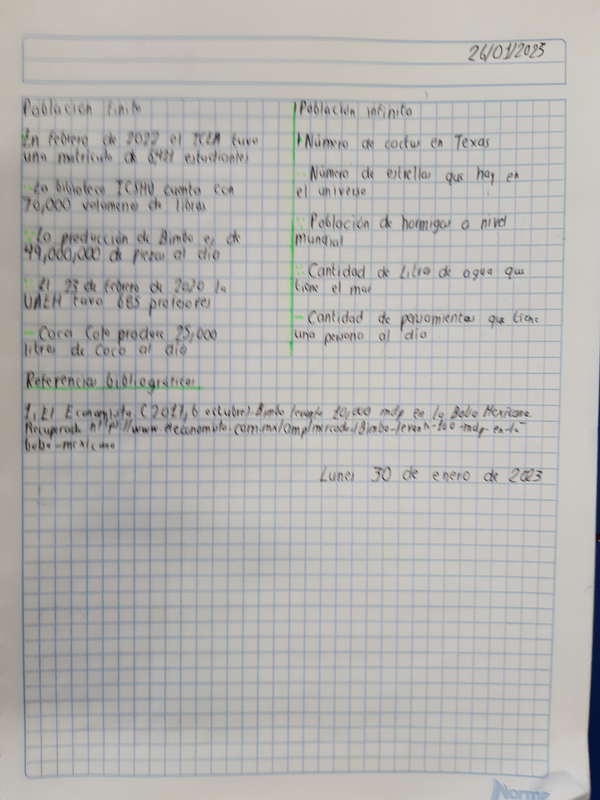 26/01/2023
Población finita
En febrero de 2022 el ICEA tuvo
una matrícula de 6,421 estudiantes
La biblioteca ICSHU cuenta con
70,000 volumenes de libros
La producción de Bimbo es de
49,000,000 de piezas al día
El 23 de febrero de 2020 la
UAEH tuvo 685 profesores
- Coca Cola produce 25,000
litros de Coca al día
Población infinita
Número de cactus en Texas
Número de estrellas que hay en
el universo
Población de hormigas a nivel
mundial
Cantidad de Litros de agua que
tiene el mar
- Cantidad de pensamientos que tiene
una persona al día
Referencias bibliográficas
1. El Economista (2017, 6 octubre). Bimbo levanta 10,000 mdp en la Bolsa Mexicana.
Recuperado
Lunes 30 de enero de 2023
Norma